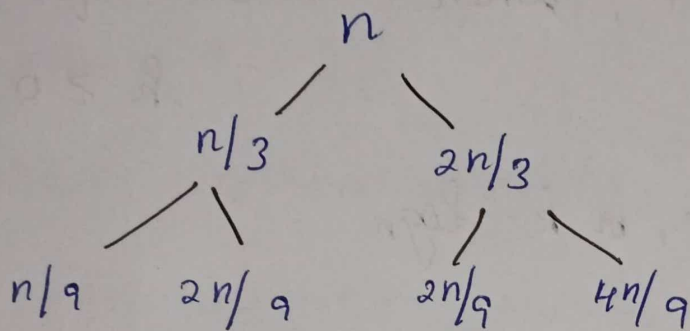 n
n/3 2n/3
n/9 2n/9 2n/9 4n/9